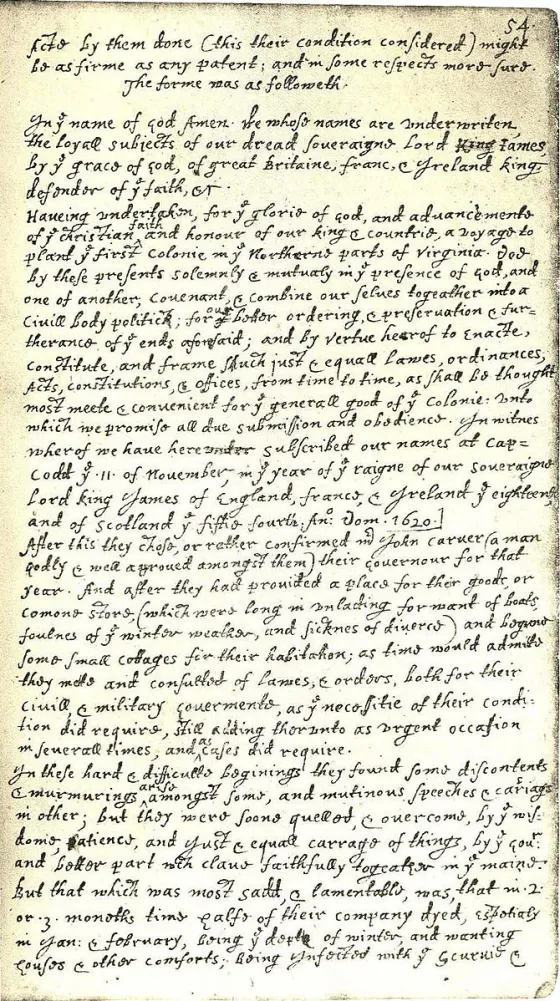 54
Acts by them done (this their condition considered) might
be as firme as any patent; and in some respects more sure.
The forme was as followeth.
In yͤ name of god Amen. We whose names are underwriten,
the loyall subjects of our dread soveraigne Lord King James
by yͤ grace of god, of great Britaine, franc, & Ireland king,
defender of yͤ faith, &c.
Haveing undertaken, for yͤ glorie of god, and advancemente
of yͤ christian faith and honour of our king & countrie, a voyage to
plant yͤ first Colonie in yͤ Northerne parts of Virginia. Doe
by these presents solemnly & mutualy in yͤ presence of god, and
one of another, covenant, & combine our selves togeather into a
Civill body politick; for our better ordering, & preservation & fur=
therance of yͤ ends aforesaid; and by vertue hearof to Enacte,
constitute, and frame shuch just & equall lawes, ordinances,
Acts, constitutions, & offices, from time to time, as shall be thought
most meete & convenient for yͤ generall good of yͤ Colonie: unto
which we promise all due submission and obedience. In witnes
wherof we have hereunder subscribed our names at Cap=
Codd yͤ .11. of November, in yͤ year of yͤ raigne of our soveraigne
Lord king James of England, france, & Ireland yͤ eighteenth
and of Scotland yͤ fiftie fourth. An°: Dom. 1620.]
After this they chose, or rather confirmed mʳ John Carver (a man
godly & well approved amongst them) their governour for that
year. And after they had provided a place for their goods, or
comone store, (which were long in unlading for want of boats,
foulnes of yͤ winter weather, and sicknes of diverce) and begune
some small cottages for their habitation; as time would admitte
they mette and consulted of lawes, & orders, both for their
civill & military govermente, as yͤ necessitie of their condi=
tion did require, still adding therunto as urgent occasion
in severall times, and as cases did require.
In these hard & difficulte beginings they found some discontents
& murmurings arise amongst some, and mutinous speeches & cariags
in other; but they were soone quelled, & overcome, by yͤ wis=
dome, patience, and just & equall carrage of things, by yͤ govʳ:
and better part wᶜʰ clave faithfully togeather in yͤ maine.
But that which was most sadd, & lamentable, was, that in .2.
or .3. moneths time halfe of their company dyed, espetialy
in Jan: & february, being yͤ depth of winter, and wanting
houses & other comforts; being Infected with yͤ Scurvie &